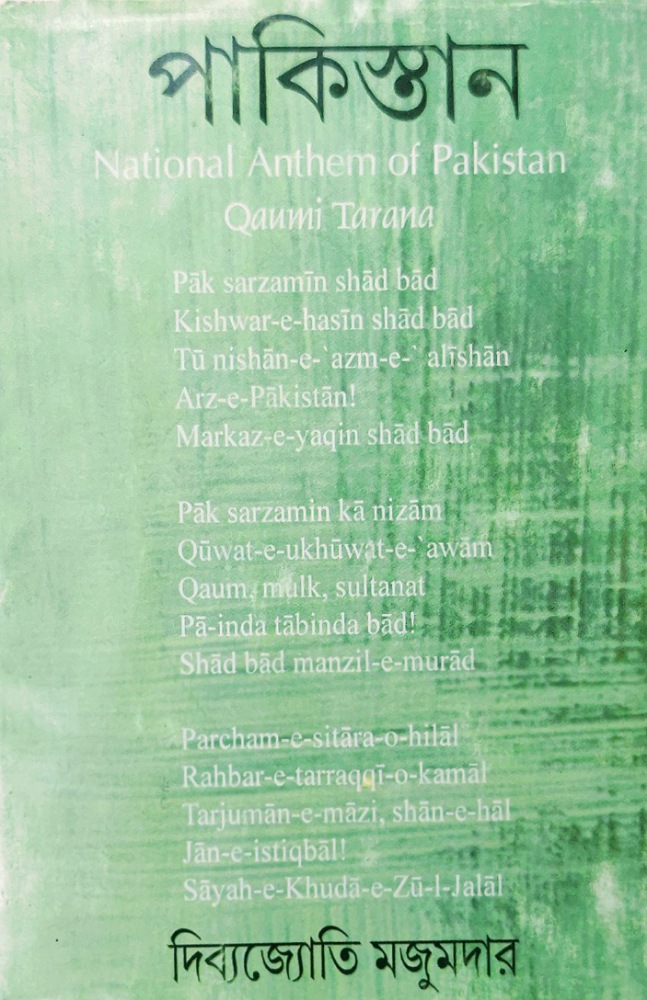 পাকিস্তান
National Anthem of Pakistan
Qaumi Tarana
Pāk sarzamīn shād bād
Kishwar-e-hasīn shād bād
Tū nishān-e-`azm-e-` alīshān
Arz-e-Pākistān!
Markaz-e-yaqin shād bād
Pāk sarzamin kā nizām
Qūwat-e-ukhūwat-e-`awām
Qaum, mulk, sultanat
Pā-inda tābinda bād!
Shād bād manzil-e-murād
Parcham-e-sitāra-o-hilāl
Rahbar-e-tarraqqī-o-kamāl
Tarjumān-e-māzi, shān-e-hāl
Jān-e-istiqbāl!
Sāyah-e-Khudā-e-Zū-l-Jalāl
দিব্যজ্যোতি মজুমদার